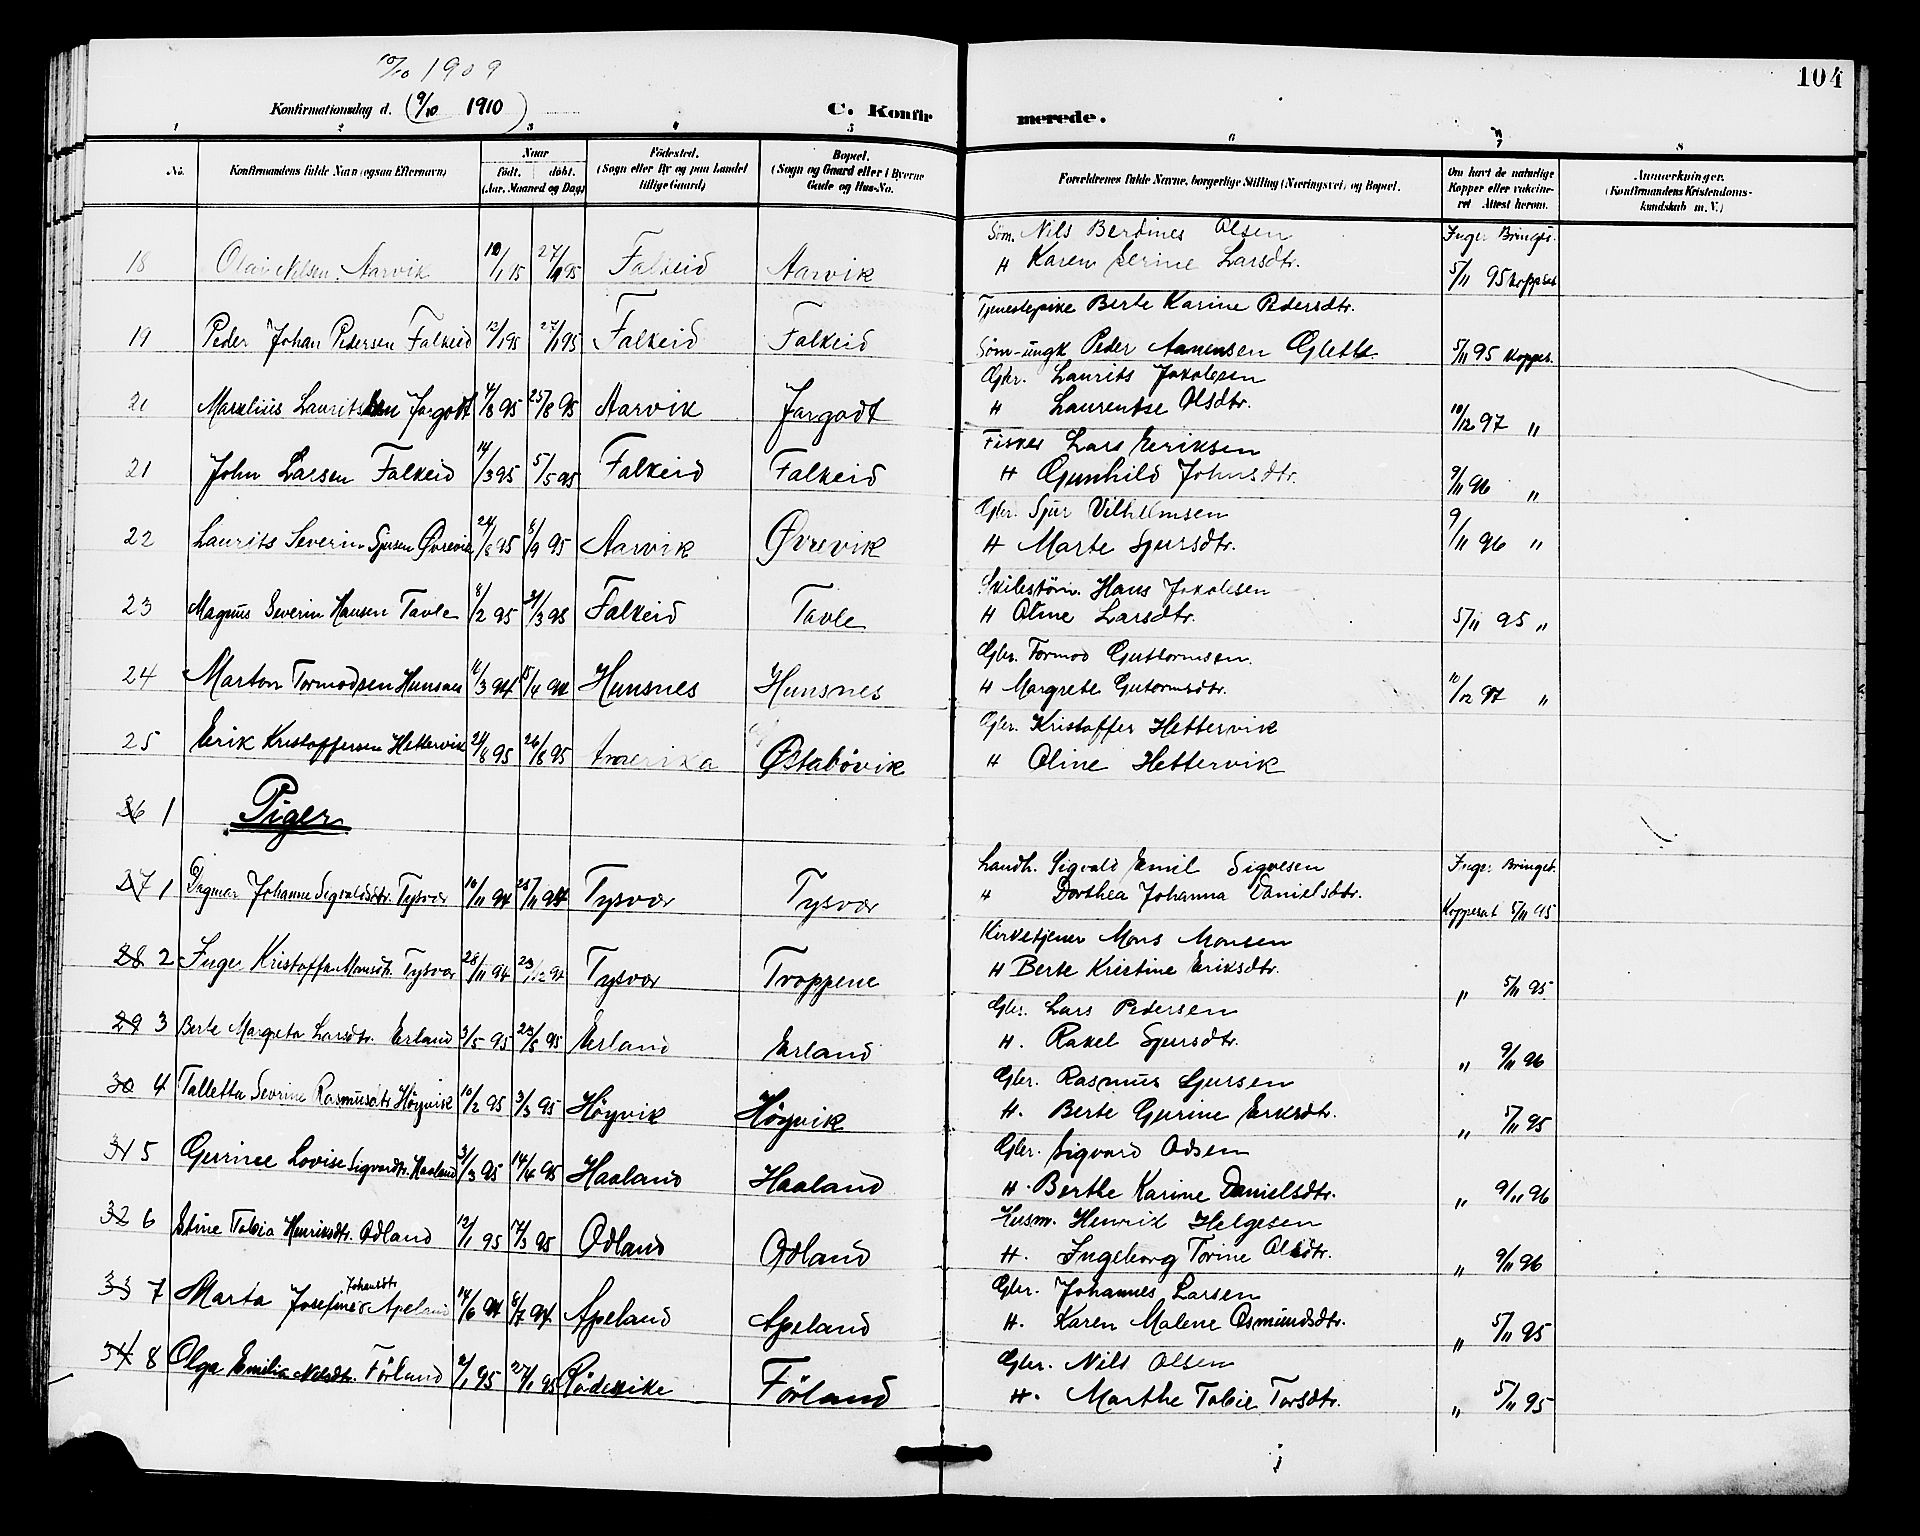 10/10 1909
104
Konfirmationsdag d. (9/10 1910)
C. Konfirmerede.
1 2 3 4 5 6 7 8
No. Konfirmandens fulde Navn (ogsaa Efternavn) Naar født. døbt. (Aar, Maaned og Dag) Fødested. (Sogn eller By og paa Landet tillige Gaard) Bopæl. (Sogn og Gaard eller i Byerne Gade og Hus-No. Forældrenes fulde Navne, borgerlige Stilling (Næringsvei) og Bopæl. Om havt de naturlige Kopper eller vaccineret. Attest herom. Anmærkninger. (Konfirmandens Kristendomskundskab m. V.)
18 Olai Nilsen Aarvik 27/1 95 Falkeid Aarvik Søm. Nils Berdines Olsen
H Karen Serine Larsdtr. 5/11 95
19 Peder Johan Pedersen Falkeid 12/1 95 27/1 95 Falkeid Falkeid Tjenestepike Berte Karine Pedersdtr.
Søm-ungk Peder Aanensen 5/11 95 Kopper.
21 Marelius Lauritssen Jargodt 4/8 95 25/8 95 Aarvik Jargodt Gbr. Laurits Jakobsen
H Laurentse Olsdtr. 10/12 97 "
21 John Larsen Falkeid 14/3 95 5/5 95 Falkeid Falkeid Fisker Lars Eriksen
H Gunhild Johnsdtr. 9/11 96 "
22 Laurits Severin Sjursen Øvrevik 24/8 95 8/9 95 Aarvik Øvrevik Gbr. Sjur Vilhelmsen
H Marte Sjursdtr. 9/11 96 "
23 Magnus Severin Hansen Tavle 8/2 95 31/3 95 Falkeid Tavle Hans Jakobsen
H Oline Larsdtr. 5/11 95 "
24 Marton Tormodsen Hunsnes 11/3 94 15/4 94 Hunsnes Hunsnes Gbr. Tormod Guttormsen.
H Margrete Gutormsdtr. 10/12 97 "
25 Erik Kristoffersen Hettervik 21/8 95 26/8 95 Amerika Østabøvik Gbr. Kristoffer Hettervik
H Oline Hettervik
26 1 Piger
27 1 Dagmar Johanne Sigvaldsdtr. Tysvær 10/11 94 25/11 94 Tysvær Tysvær Landh. Sigvald Emil Sigvesen
" Dorthea Johanna Danielsdtr. 5/11 95
28 2 Inger Kristoffa Monsdtr. Tysvær 28/11 94 23/12 94 Tysvær Troppene Kirketjener Mons Monsen
H Berte Kristine Eriksdtr. " 5/11 95
29 3 Berte Margreta Larsdtr. Erland 3/5 95 23/5 95 Erland Erland Gbr. Lars Pedersen
H. Rakel Sjursdtr. " 9/11 96
30 4 Talletta Sevrine Rasmusdtr Høyvik 10/2 95 3/3 95 Høyvik Høyvik Gbr. Rasmus Sjursen
H. Berte Gurine Eriksdtr. " 5/11 95
31 5 Gurinee Lovise Sigvardtr. Haaland 3/3 95 14/4 95 Haaland Haaland Gbr. Sigvard Odsen
H. Berthe Karine Danielsdtr. " 9/11 96
32 6 Stine Tobia Henriksdtr. Odland 12/1 95 17/3 95 Odland Odland Husm. Henrik Helgesen
H. Ingeborg Torine Olsdtr. " 9/11 96
33 7 Marta Josefine Johansdtr Apeland 14/6 94 8/7 94 Apeland Apeland Gbr. Johannes Larsen
H. Karen Malene Osmundsdtr. " 5/11 95
34 8 Olga Emilia Nilsdtr. Førland 2/1 95 27/1 95 Førland Gbr. Nils Olsen
H. Marthe Tobie Torsdtr. " 5/11 95